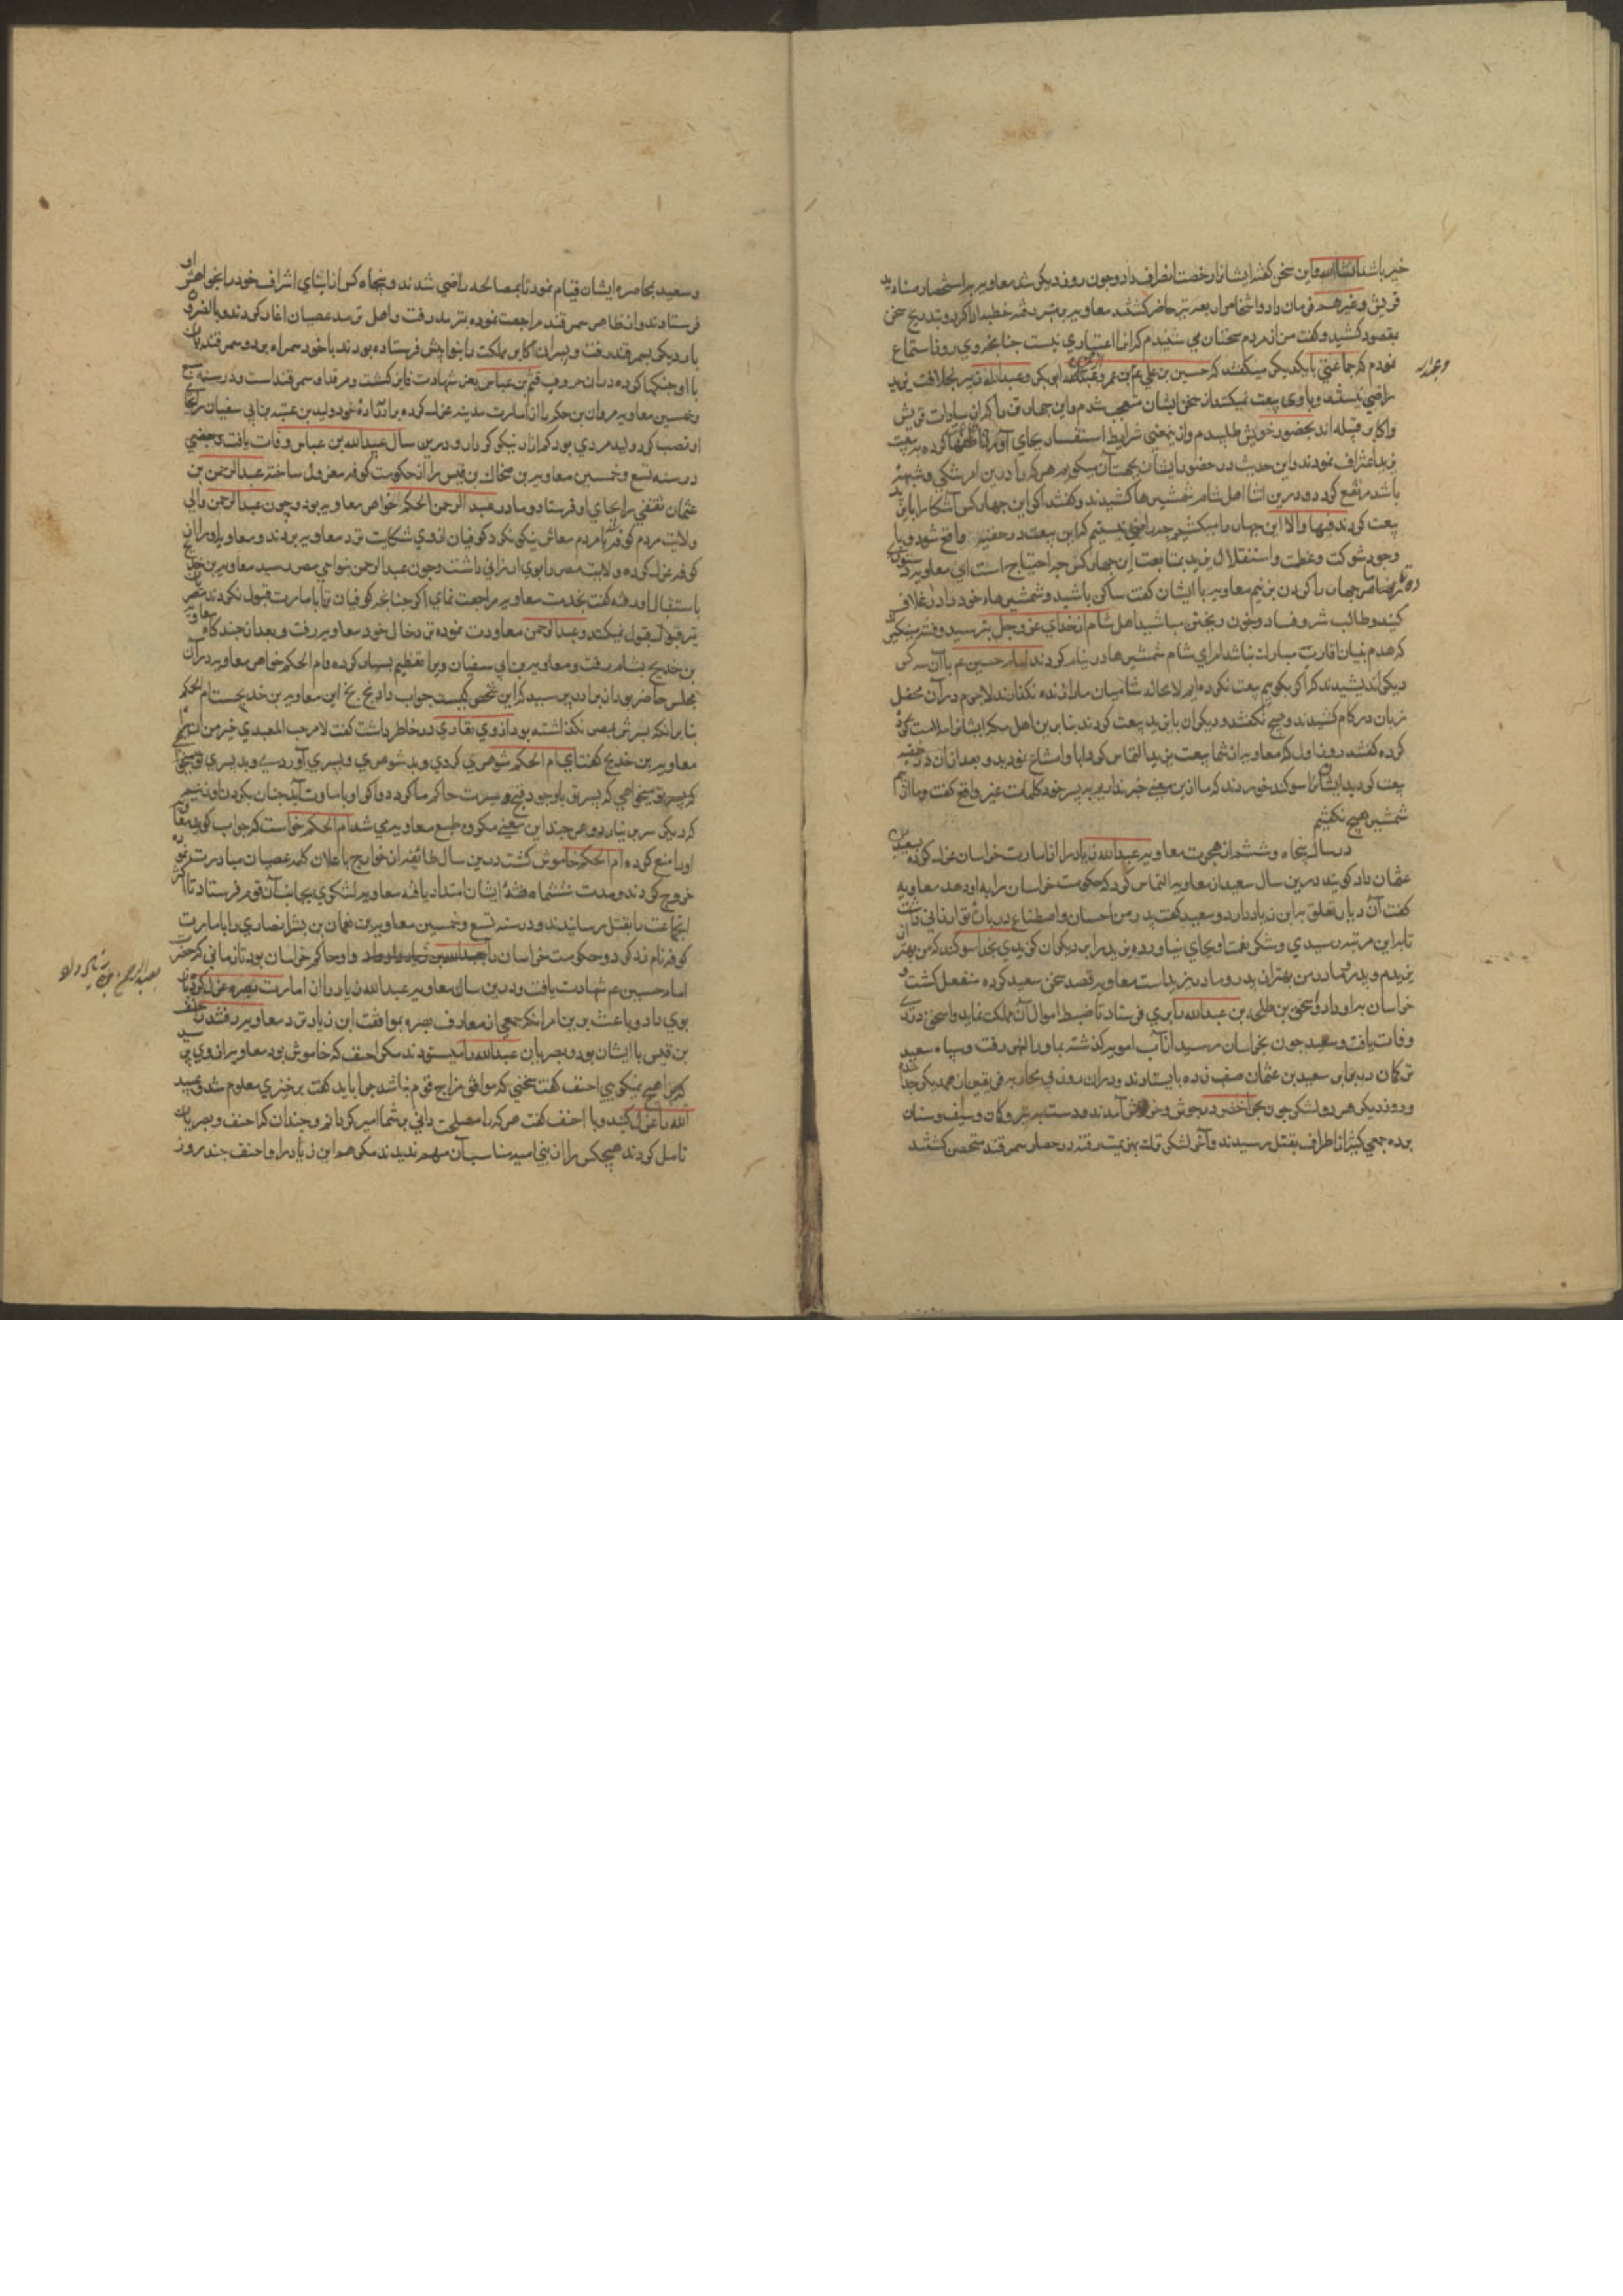 خیر باشد انشاالله و این سخن گفته ایشانرا رخصت انصراف داد و چون روز دیگر شد معاویه باستحضار
قریش و غیرهم فرمان داد و اشخاص اربعه نیز حاضر گشتند معاویه بر منبر رفته خطبه ادا کرد و بتدریج سخن
بمقصود کشید و گفت من از مردم سخنان می شنیدم که آنرا اعتباری نیست چنانچه روزی روز استماع
نمودم که جماعتی با یکدیگر میگفتند که حسین بن علی و بن عمر و عبدالله ابوبکر و عبدالله زبیر بخلافت یزید
راضی نیستند و با وی بیعت نمیکنند از سخن ایشان متعجب شدم و این چهار تن را که از سادات قریش
و اکابر قبیله اند بحضور خویش طلبیدم و از ینمعنی شرایط استفسار بجای آوردم کرده به بیعت
یزید اعتراف نمودند و این حدیث در حضور ایشان بجهت آن میگویم هر که را درین امر شکی و شبهه
باشد مرتفع گردد و درین اثنا اهل شام شمشیرها کشیدند و گفتند اگر این چهار کس آشکارا با یزید
بیعت کردند فبها والا این چهار را میکشیم چه راضی نیستیم که این بیعت در خفیه واقع شود و با
وجود شوکت و عظمت و استقلال یزید بمتابعت این چهار کس چه احتیاج است ای معاویه
چهار را گردن بزنیم معاویه با ایشان گفت ساکن باشید و شمشیرهاء خود را در غلاف
کنید و طالب شر و فساد و خون ریختن مباشید اهل شام از خدای عز و جل بترسید و فتنه
که هدم بنیان اقارب مبارک نباشد امرای شام شمشیرها در نیام کردند امام حسین عم با آن سه کس
دیگر اندیشیدند که اگر بگوییم بیعت نکرده ایم لا محاله شامیان ما را زنده نگذارند لاجرم در آن محفل
زبان در کام کشیدند و هیچ نگفتند و دیگران با یزید بیعت کردند بنابرین اهل مکه ایشانرا ملامت
کرده گفتند روز اول که معاویه از شما بیعت یزید التماس کرد ابا و امتناع نمودید و بعد از آن در خفیه
بیعت کردید ایشان سوگند خوردند که ما ازین معنی خبر نداریم به پسر خود کلمات غیر واقع گفت و ما از بیم
شمشیر هیچ نگفتیم
در سال پنجاه و ششم از هجرت معاویه عبدالله زیاد را از امارت خراسان عزل کرده بسعید
عثمان داد گویند درین سال سعید از معاویه التماس کرد که حکومت خراسان را به او دهد معاویه
گفت آن دیار تعلق بابن زیاد دارد و سعید گفت پدر من احسان و اصطناع درباره تو ارزانی داشت
تا باین مرتبه رسیدی و شکر نعمت او بجای نیاورده یزید را بر دیگران گزیدی بخدا سوگند که من بهتر از
یزیدم و پدر و مادر من بهتر از پدر و مادر یزید است معاویه قصد سخن سعید کرده منفعل گشت و
خراسان بر او داد و اسحق بن طلحه بن عبدالله را بری فرستاد تا ضبط اموال آن مملکت نماید و اسحق در ری
وفات یافت و سعید چون بخراسان رسید از آب امویه گذشته بماوراالنهر رفت و سپاه سعید
ترکان در برابر سعید بن عثمان صف زده بایستادند و در آن روز فی یقین از همدیگر جدا شده
و روز دیگر هر دو لشکر چون بحر اخضر در جوش و خروش آمدند و دست به تیر و کمان و سیف و سنان
برده جمعی کثیر از اطراف بقتل رسیدند و آخر لشکر ترک بهزیمت رفته در حصار سمرقند متحصن گشتند
و سعید بمحاصره ایشان قیام نمود تا بمصالحه راضی شدند و پنجاه کس از ابنای اشراف خود را بنوا پیش او
فرستادند و از ظاهر سمرقند مراجعت نموده بترمد رفت و اهل ترمد عصیان اغاز کردند و بالضرورة
بار دیگر بسمرقند رفت و پسران اکابر مملکت را بنوا پیش فرستاده بودند با خود همراه برد و سمرقندیان
با او جنگها کرده در آن حروف قثم بن عباس بعز شهادت فایز گشت و مرقد او سمرقند است و در سنه سبع
و خمسین معاویه مروان بن حکم را از امارت مدینه عزل کرده برادرزاده خود ولید بن عتبه بن ابی سفیان را بجای
او نصب کرد ولید مردی بود کم آزار نیکو کردار و درین سال عبیدالله بن عباس وفات یافت و بعضی
در سنه تسع و خمسین معاویه بن ضحاک بن قیس را از حکومت کوفه معزول ساخته عبدالرحمن بن
عثمان ثقفی را بجای او فرستاد و مادر عبدالرحمن ام الحکم خواهر معاویه بود و چون عبدالرحمن والی
ولایت مردم کوفه با مردم معاش نیکو نکرد کوفیان از وی شکایت نزد معاویه بردند و معاویه او را از
کوفه عزل کرده ولایت مصر را بوی ارزانی داشت و چون عبدالرحمن بنواحی مصر رسید معاویه بن خدیج
باستقبال او رفته گفت بخدمت معاویه مراجعت نمای اگر چنانچه کوفیان ترا بامارت قبول نکردند مصریان
نیز قبول نمیکنند و عبدالرحمن معاودت نموده نزد خال خود معاویه رفت و بعد از چند گاه معاویه
بن خدیج بشام رفت و معاویه بن ابی سفیان ویرا تعظیم بسیار کرده و ام الحکم خواهر معاویه در آن
مجلس حاضر بود از برادر پرسید که این شخص کیست جواب داد بخ بخ این معاویه بن خدیج است ام الحکم
بنابر آنکه پسرش بمصر نگذاشته بود از وی نقاری در خاطر داشت گفت لا مرحبا المعیدی خیر من ان تراه
معاویه بن خدیج گفت ای ام الحکم شوهری کردی و بد شوهری و پسری آوردی و بد پسری تو میخواهی
که پسر تو باوجود فسق و سیرت حاکم ما گردد و اگر او با ما آید چنان بکردن او زنیم
که دیگر سر بر نیارد و هر چند این معنی مکروه طبع معاویه می شد ام الحکم خواست که جواب گوید معاویه
او را منع کرده ام الحکم خاموش گشت درین سال طائفه از خوارج باعلان کلمه عصیان مبادرت نموده
خروج کردند و مدت ششماه فتنهٔ ایشان امتداد یافته معاویه لشکری بجانب آن قوم فرستاد تا اکثر
انجماعت را بقتل رسانیدند و در سنه تسع و خمسین معاویه بن نعمان بن بشر انصاری را بامارت
کوفه نام زد کرد و حکومت خراسان را بعبدالله بن زیاد داد و او حاکم خراسان بود تا زمانی که حضرت
امام حسین عم شهادت یافت و درین سال معاویه عبدالله زیاد را از امارت بصره عزل کرد
بوی داد و باعث برین امر آنکه جمعی از معارف بصره بموافقت ابن زیاد نزد معاویه رفتند و احنف
بن قیس با ایشان بود و بصریان عبدالله را میستودند مگر احنف که خاموش بود معاویه از وی پرسید
که چرا هیچ نمیگویی احنف گفت سخنی که موافق مزاج قوم نباشد چرا باید گفت
الله را عزل کنید و با احنف گفت هر که را مصلحت دانی بر شما امیر گردانم و چندان که احنف و بصریان
تامل کردند هیچکس را از بنی امیه مناسب آن مهم ندیدند مگر هم ابن زیاد را و احنف چند روز